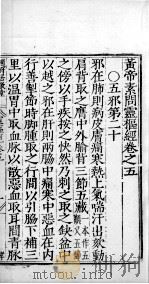 黃帝素問靈樞經卷之五
○五邪第二十
邪在肺則病皮膚痛寒熱上氣喘汗出欬動
肩背取之膺中外腧背三節五藏
之傍以手疾按之快然乃刺之取之缺盆中
以越之邪在肝則兩脇中痛寒中惡血在內
行善掣節時脚腫取之行間以引脇下補三
里以溫胃中取血脉以散惡血取耳間青脉